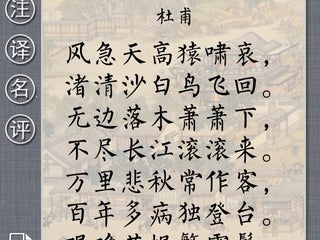 杜甫
风急天高猿啸哀，
渚清沙白鸟飞回。
无边落木萧萧下，
不尽长江滚滚来。
万里悲秋常作客，
百年多病独登台。
注
译
名
评